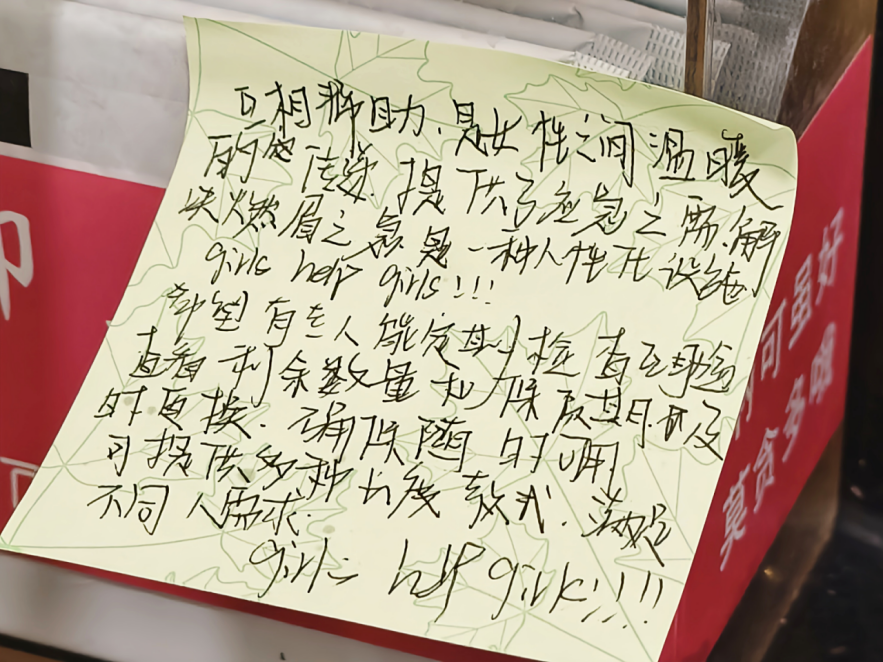 互相帮助,是女性之间温暖
的传递.提供了应急之需,解
决燃眉之急是一种人性化设施
girls help girls!!!
希望有专人能定期检查
查看剩余数量和保质期.以及
时更换.确保随时可用
可提供多种长度款式.满足
不同人需求.
girls help girls!!!!
可虽好
莫贪多哦